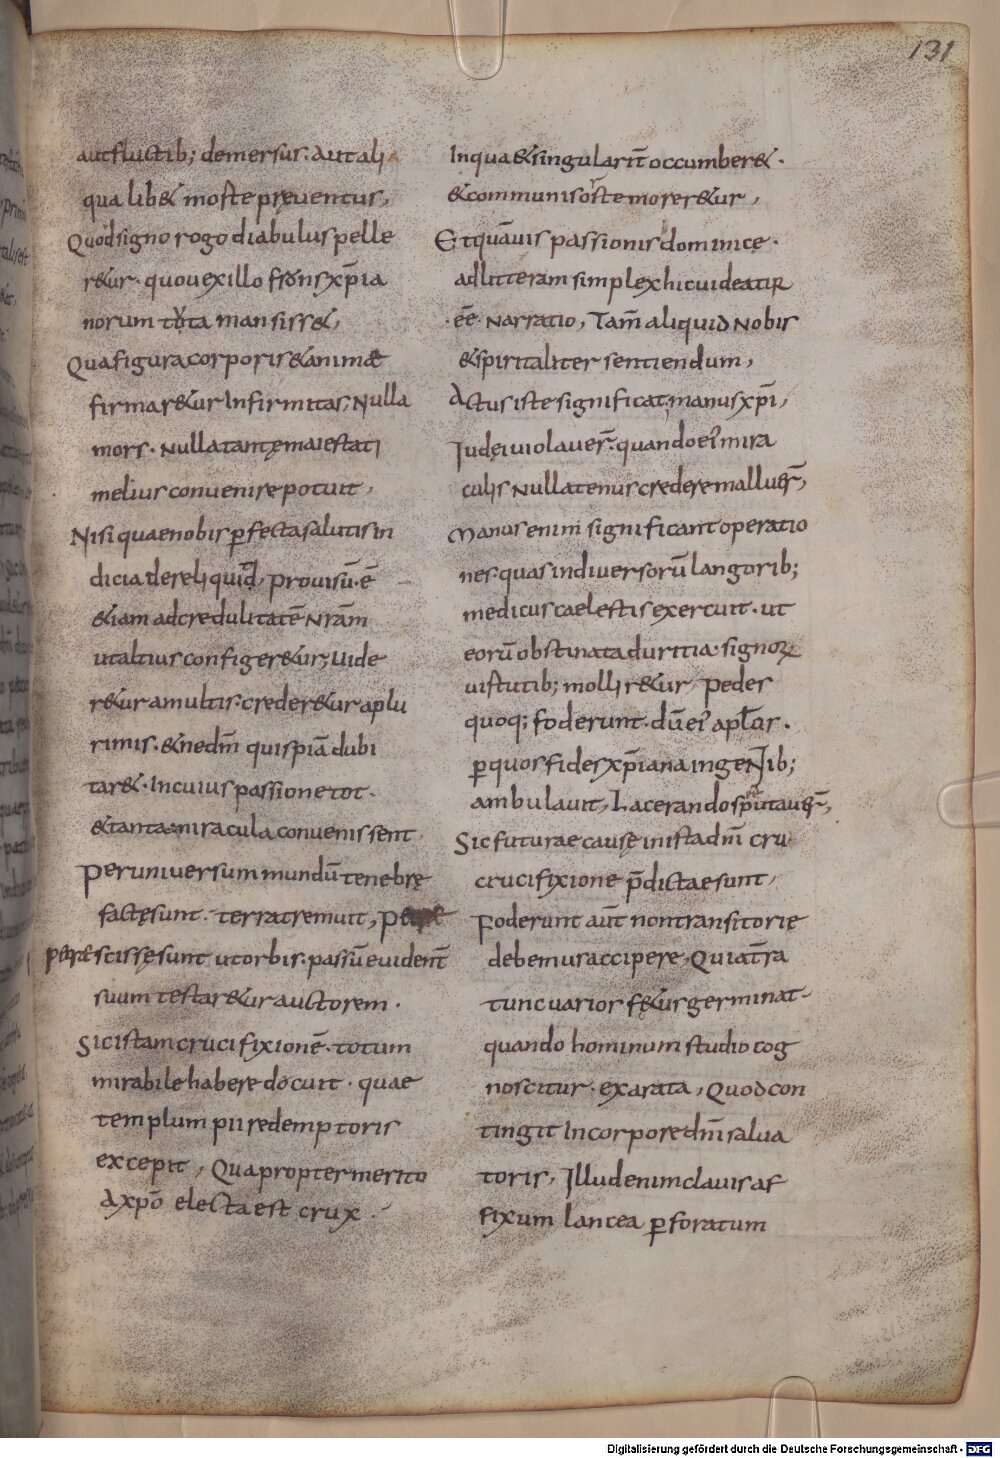 131
aut fluctib; demersus. Aut ali
qua lib& morte preventus,
Quod signo rogo diabulus pelle
r&ur. quo vexillo frons xp̄ia
norum tota mansiss&,
Qua figura corporis & animæ
firmar&ur Infirmitas, Nulla
mors. Nulla tantę maiestati
melius convenire potuit,
Nisi quae nobis p̄fecta salutis in
dicia dereliquid, provisū. ē
&iam ad credulitatē Nr̄am
ut altius configer&ur, Uide
r&ur a multis. creder&ur a plu
rimis. & ne dm̄ quispiā dubi
tar&. In cuius passione tot.
& tanta miracula convenissent
Per universum mundū tenebrę
factę sunt. terra tremuit,
petrę scissę sunt ut orbis. passū evidenť
suum testar&ur auctorem.
Sic istam crucifixionē. totum
mirabile habere docuit. quae
templum pii redemptoris
excepit, Quapropter merito
A xpō electa est crux.
In qua & singularit̄ occumber&.
& communi sorte morer&ur,
Et quāvis passionis dominicę.
ad litteram simplex hic videatur
.ēē. Narratio, Tam̄ aliquid Nobis
& spiritaliter sentiendum,
Actus iste significat, manus xp̄i,
Iudęi violaver̄. quando ei' mira
culis Nullatenus credere malluer̄,
Manus enim significant operatio
nes. quas in diversorū langorib;
medicus caelestis exercuit. ut
eorū obstinata duritia. signorꝝ
virtutib; mollir&ur, Pedes
quoq; foderunt. dū ei' apl̄os.
p̄ quos fides xp̄iana in gentib;
ambulavit, Lacerando spūtaver̄,
Sic futurae causę in ista dm̄ cru
crucifixione p̄dictae sunt,
Foderunt aūt non transitorie
debemus accipere, Quia t̄ra
tunc varios f&us germinat
quando hominum studio cog
noscitur. exarata, Quod con
tingit In corpore dm̄ salva
toris, Illud enim clavis af
fixum lancea p̄foratum
Digitalisierung gefördert durch die Deutsche Forschungsgemeinschaft - DFG